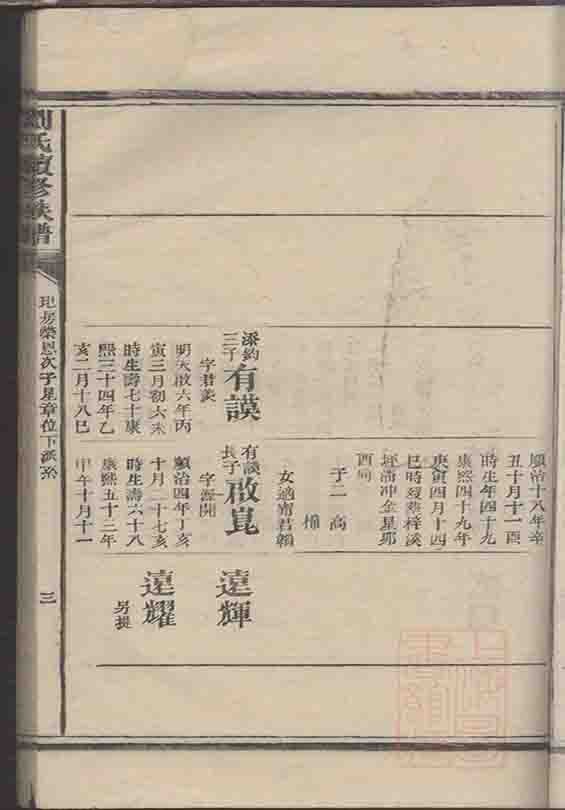 順治十八年辛
丑十月十一酉
時生年四十九
康熙四十九年
庚寅四月十四
巳時歿葬梓溪
坪湳沖金星形
酉向
子二 高
桶
女適甯君賴
添鈞三子 有謨
字君美
明天啟六年丙
寅三月初六未
時生壽七十康
熙三十四年乙
亥二月十八巳
有謨長子 啟崑
字源開
順治四年丁亥
十月二十七亥
時生壽六十八
康熙五十三年
甲午十月十一
遠輝
遠耀
另提
劉氏續修族譜
玘房榮恩次子星章位下派系
三